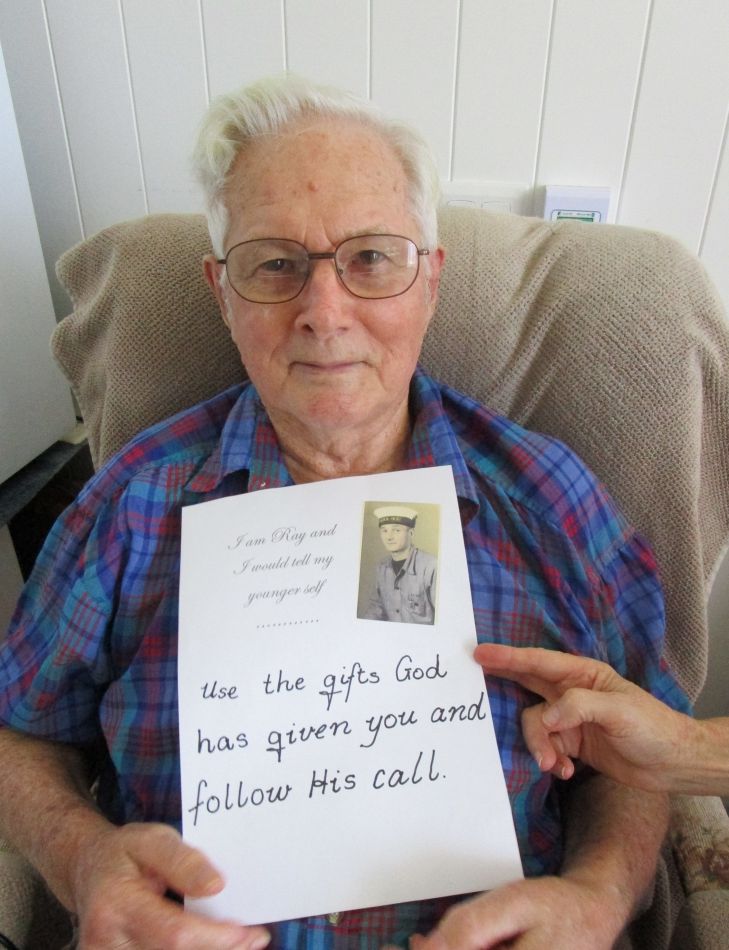 I am Ray and
I would tell my
younger self
............
Use the gifts God
has given you and
follow His call.